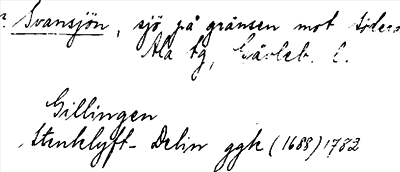 Svansjön, sjö på gränsen mot Söder
Ala sg, Gävleb. l.
Gillingen
Stenklyft- Delin ggk (1688) 1782